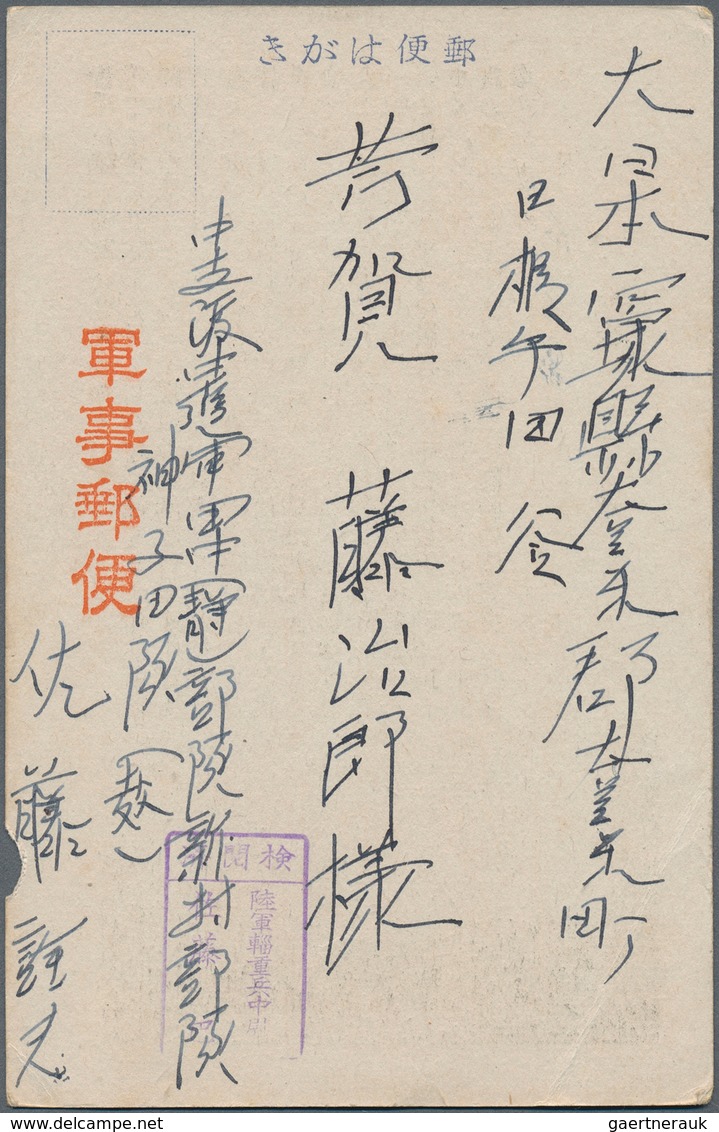 郵便はがき
大日本宮城縣登米郡登米町
日根牛田谷
芳賀藤治郎様
軍事郵便
中支派遣軍甲(静)部隊新村部隊
神子田隊
佐藤
検閲
陸軍輜重兵中尉
佐藤
gaertnerauk